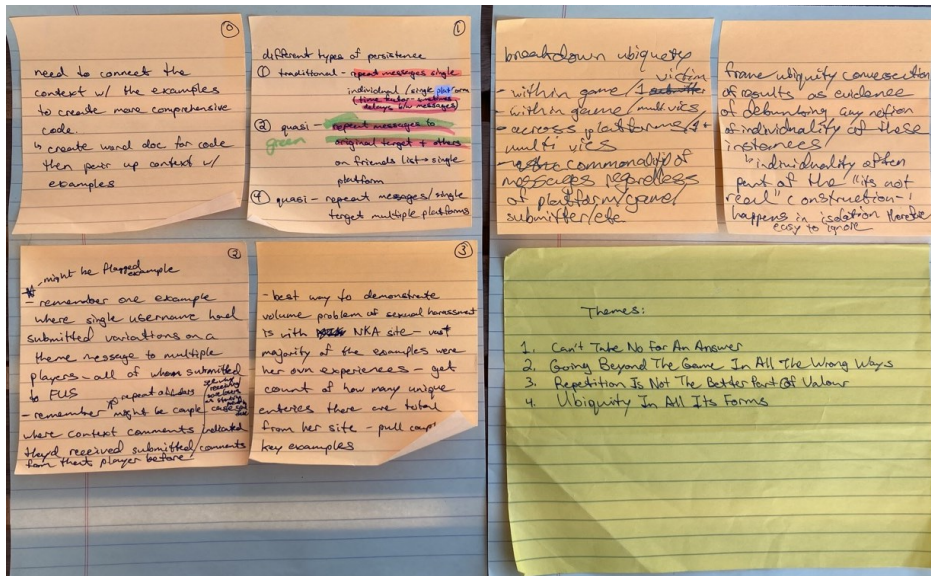 0
need to connect the
context w/ the examples
to create more comprehensive
code.
↳ create word doc for code
then pair up context w/
examples
1
different types of persistence
① traditional - repeat messages single
individual / single platform
delays b/w messages)
② quasi - repeat messages to
green
original target + others
on friends list → single
platform
④ quasi - repeat messages / single
target multiple platforms
2
might be flagged example
- remember one example
where single username had
submitted variations on a
theme message to multiple
players - all of whom submitted
to FUS
- remember might be couple
where context comments indicated
they'd received submitted comments
from that player before
3
- best way to demonstrate
volume problem of sexual harassment
is with NKA site - vast
majority of the examples were
her own experiences - get
count of how many unique
enteries there are total
from her site - pull
key examples
breakdown ubiquity
- within game / 1 victim
- within game / multi vics
- across platforms / 1 +
multi vics
- commonality of
messages regardless
of platform/game/
submitter/etc
frame ubiquity
of results as evidence
of debunking any notion
of individuality of these
instances
↳ individuality often
part of the "its not
real" construction -
happens in isolation therefore
easy to ignore
Themes:
1. Can't Take No For An Answer
2. Going Beyond The Game In All The Wrong Ways
3. Repetition Is Not The Better Part Of Valour
4. Ubiquity In All Its Forms